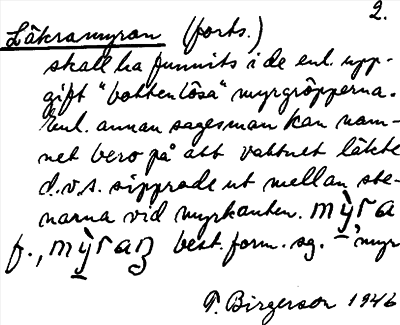 2.
Läkramyran (forts.)
skall ha funnits i de enl. upp-
gift "bottenlösa" myrgröpperna.
Enl. annan sagesman kan nam-
net bero på att vattnet läkte
d.v.s. sipprade ut mellan ste-
narna vid myrkanten. mỳra
f., mỳraŋ best. form. sg. 'myr
T. Birgerson 1946